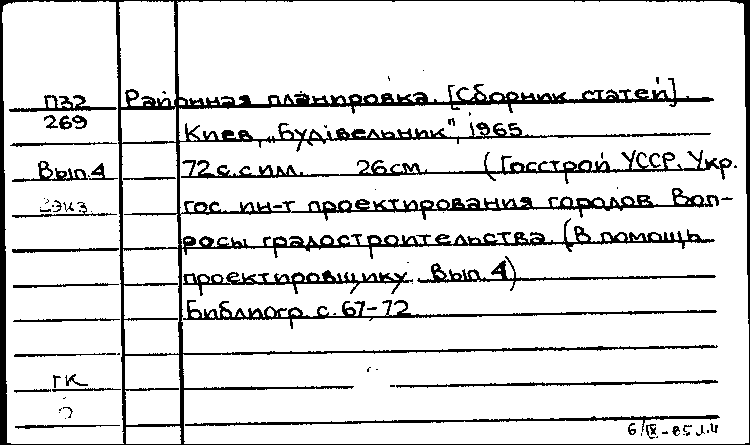 П32 Районная планировка. [Сборник статей].
269 Киев, „Будівельник", 1965.
Вып. 4 72 с. с илл. 26 см. (Госстрой УССР. Укр.
2 экз. гос. ин-т проектирования городов. Воп-
росы градостроительства. (В помощь
проектировщику. Вып. 4)
Библиогр. с. 67-72
ГК
6/IX-65